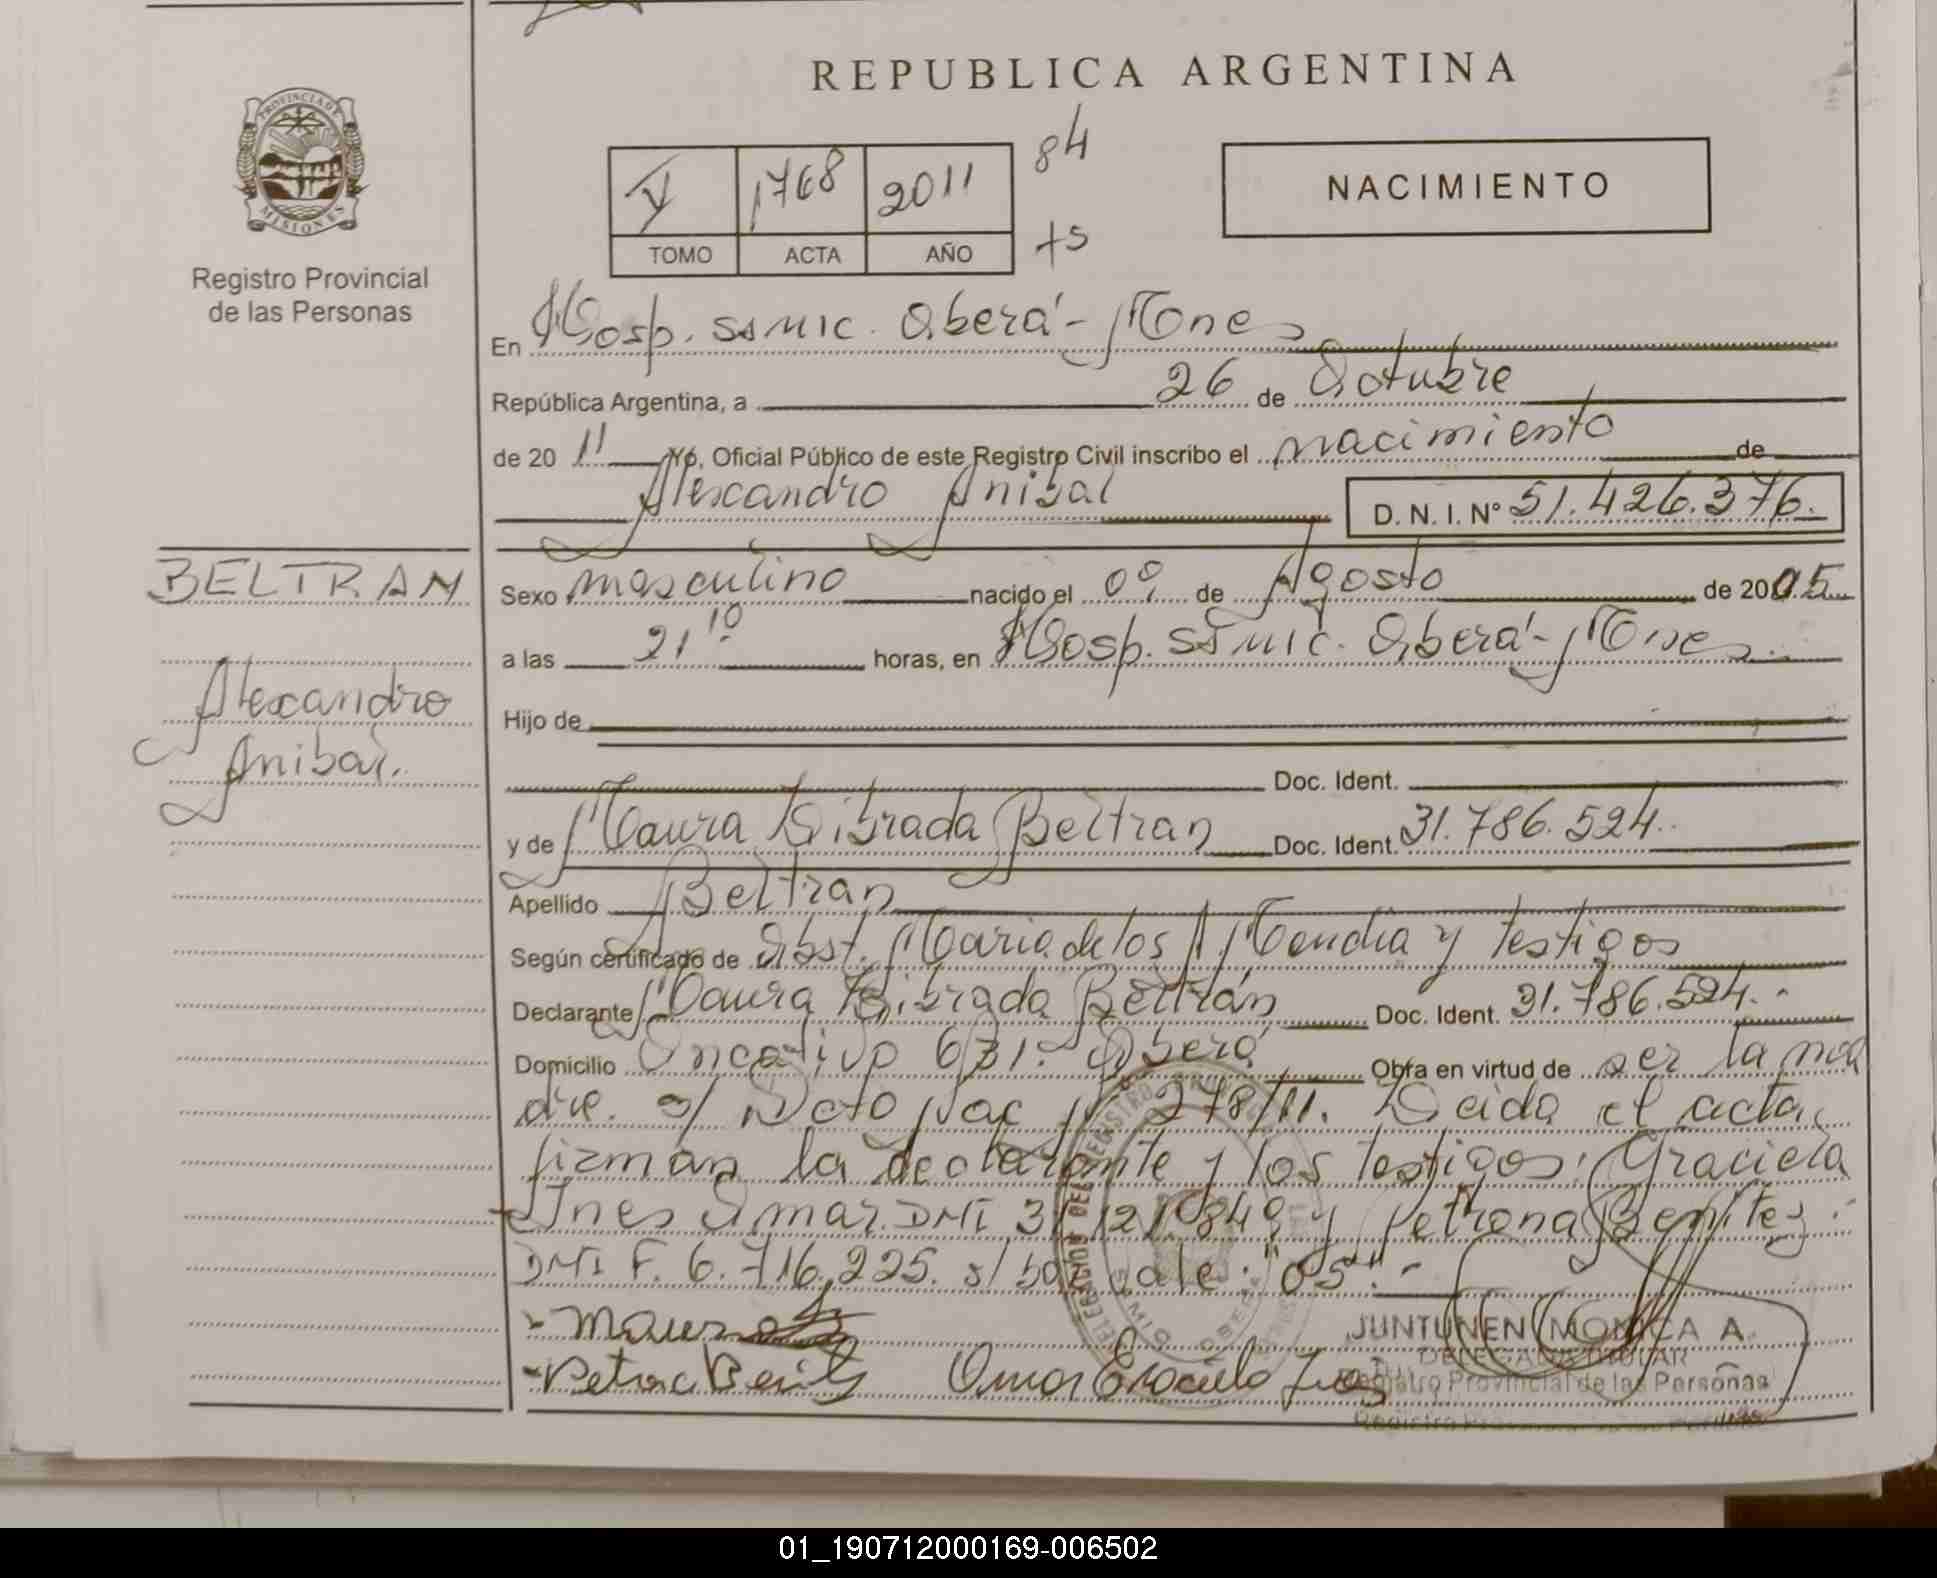 REPUBLICA ARGENTINA
PROVINCIA DE
MISIONES
Registro Provincial
de las Personas
V 1768 2011 84
TOMO ACTA AÑO +5
NACIMIENTO
En Hosp. SAMIC. Oberá - Mnes
República Argentina, a 26 de Octubre
de 20 11 Yo, Oficial Público de este Registro Civil inscribo el nacimiento de
Alexandro Anibal D. N. I. Nº 51.426.376.
BELTRAN
Alexandro
Anibal.
Sexo masculino nacido el 09 de Agosto de 2005
a las 21 10 horas, en Hosp. SAMIC. Oberá - Mnes.
Hijo de
Doc. Ident.
y de Maura Librada Beltran Doc. Ident. 31.786.524.
Apellido Beltran
Según certificado de Obst. Maria de los A. Mendia y testigos
Declarante Maura Librada Beltrán Doc. Ident. 31.786.524.-
Domicilio Oncativo 631.- Oberá Obra en virtud de ser la ma
dre. s/ Dcto Nac Nº 278/11. Leida el acta
firman la declarante y los testigos: Graciela
Ines Omar DNI 31.121.849 y Petrona Benitez.
DNI F. 6.716.225. s/ bor vale: "05".-
- Maura
- Petrona Benits Omar Graciela Ines
JUNTUNEN MONICA A.
DELEGADA TITULAR
Registro Provincial de las Personas
01_190712000169-006502